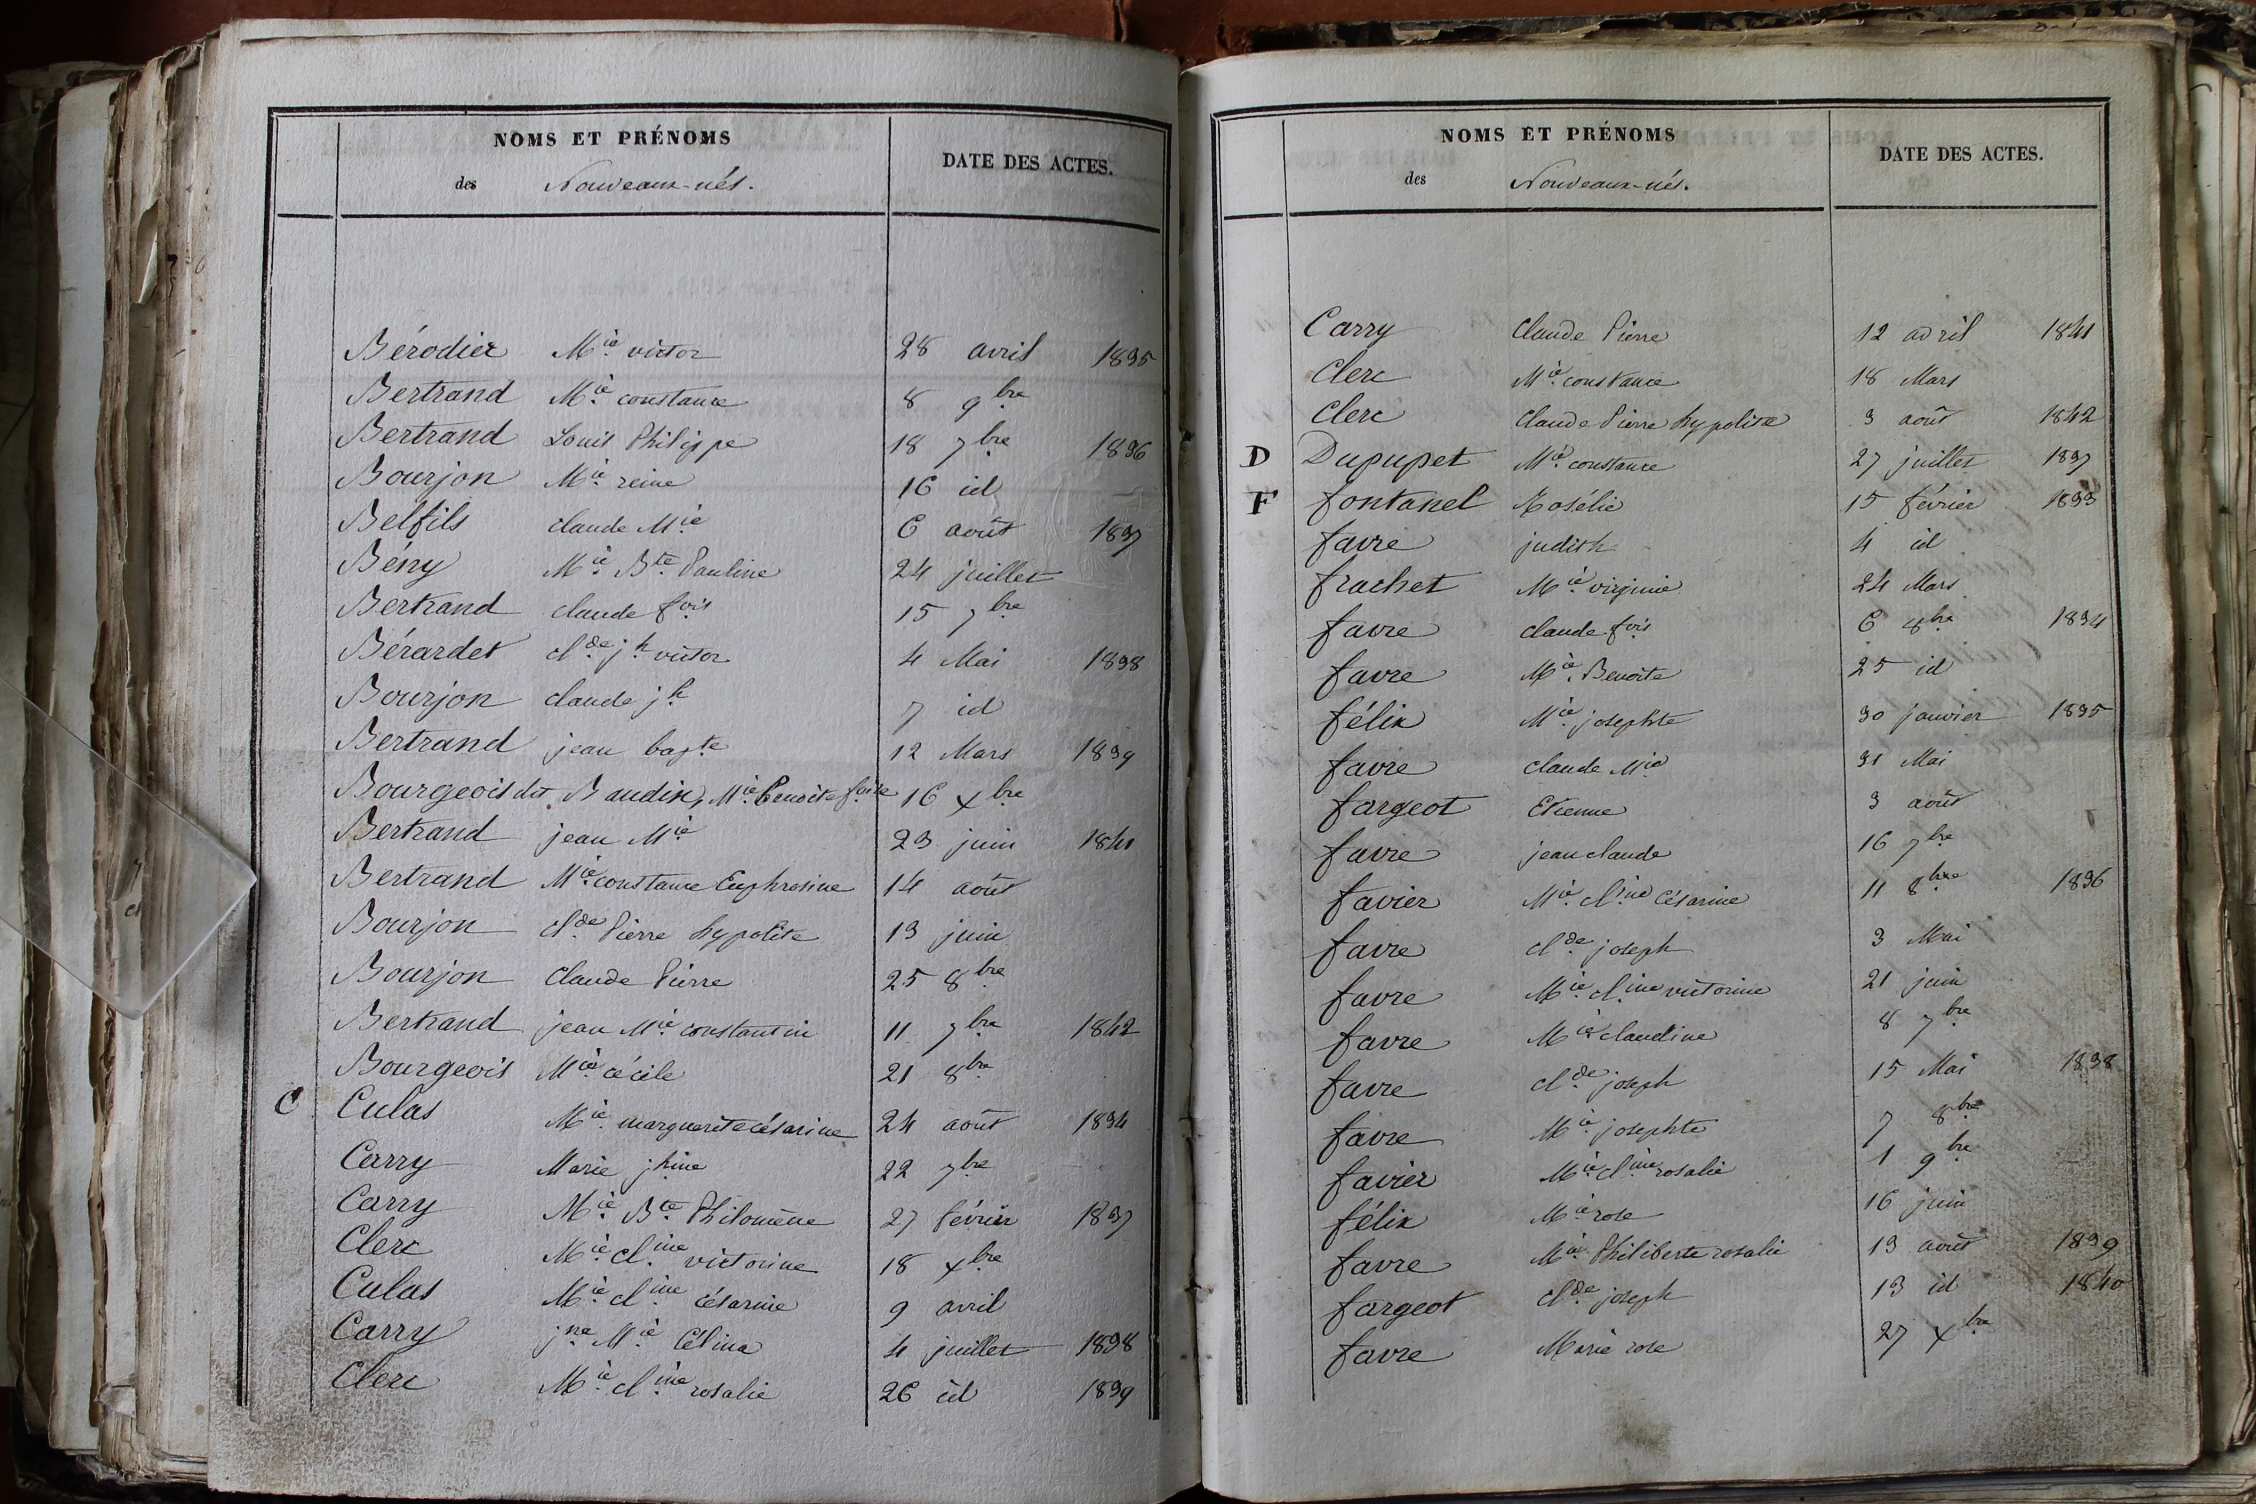 NOMS ET PRÉNOMS
des Nouveaux-nés.
DATE DES ACTES.
Bérodier Mie victor 28 avril 1835
Bertrand Mie constance 8 9bre
Bertrand Louis Philippe 18 7bre 1836
Bourjon Mie reine 16 id
Belfils claude Mie 6 août 1837
Bény Mie Bte Pauline 24 juillet
Bertrand claude fois 15 7bre
Bérardet clde jh victor 4 Mai 1838
Bourjon claude jh 7 id
Bertrand jean bapte 12 Mars 1839
Bourgeois dit Baudin, Mie Benoite 16 xbre
Bertrand jean Mie 23 juin 1841
Bertrand Mie constance Euphrosine 14 août
Bourjon clde Pierre hypolite 13 juin
Bourjon Claude Pierre 25 8bre
Bertrand jean Mie constantin 11 7bre 1842
Bourgeois Mie cécile 21 8bre
C Culas Mie marguerite césarine 24 août 1834
Carry Marie jhine 22 7bre
Carry Mie Bte Philomène 27 février 1837
Clerc Mie cline victorine 18 xbre
Culas Mie cline césarine 9 avril
Carry jne Mie Célina 4 juillet 1838
Clerc Mie cline rosalie 26 id 1839
NOMS ET PRÉNOMS
des Nouveaux-nés.
DATE DES ACTES.
Carry Claude Pierre 12 avril 1841
Clerc Mie constance 18 Mars
Clerc Claude Pierre hypolite 3 août 1842
D Dupupet Mie constance 27 juillet 1837
F fontanel Rosélie 15 février 1833
favre judith 4 id
frachet Mie virginie 24 Mars
favre claude fois 6 8bre 1834
favre Mie Benoite 25 id
félix Mie josephte 30 janvier 1835
favre claude Mie 31 Mai
fargeot Etienne 3 août
favre jean claude 16 7bre
favier Mie cline Césarine 11 8bre 1836
favre clde joseph 3 Mai
favre Mie cline victorine 21 juin
favre Mie claudine 8 7bre
favre clde joseph 15 Mai 1838
favre Mie josephte 7 8bre
favier Mie cline rosalie 1 9bre
félix Mie rose 16 juin
favre Mie Philiberte rosalie 13 août 1839
fargeot clde joseph 13 id 1840
favre Marie rose 27 xbre